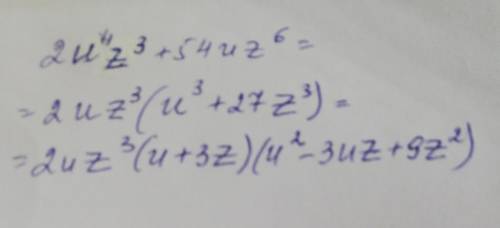 2u⁴z³+54uz⁶=
=2uz³(u³+27z³)=
=2uz³(u+3z)(u²-3uz+9z²)